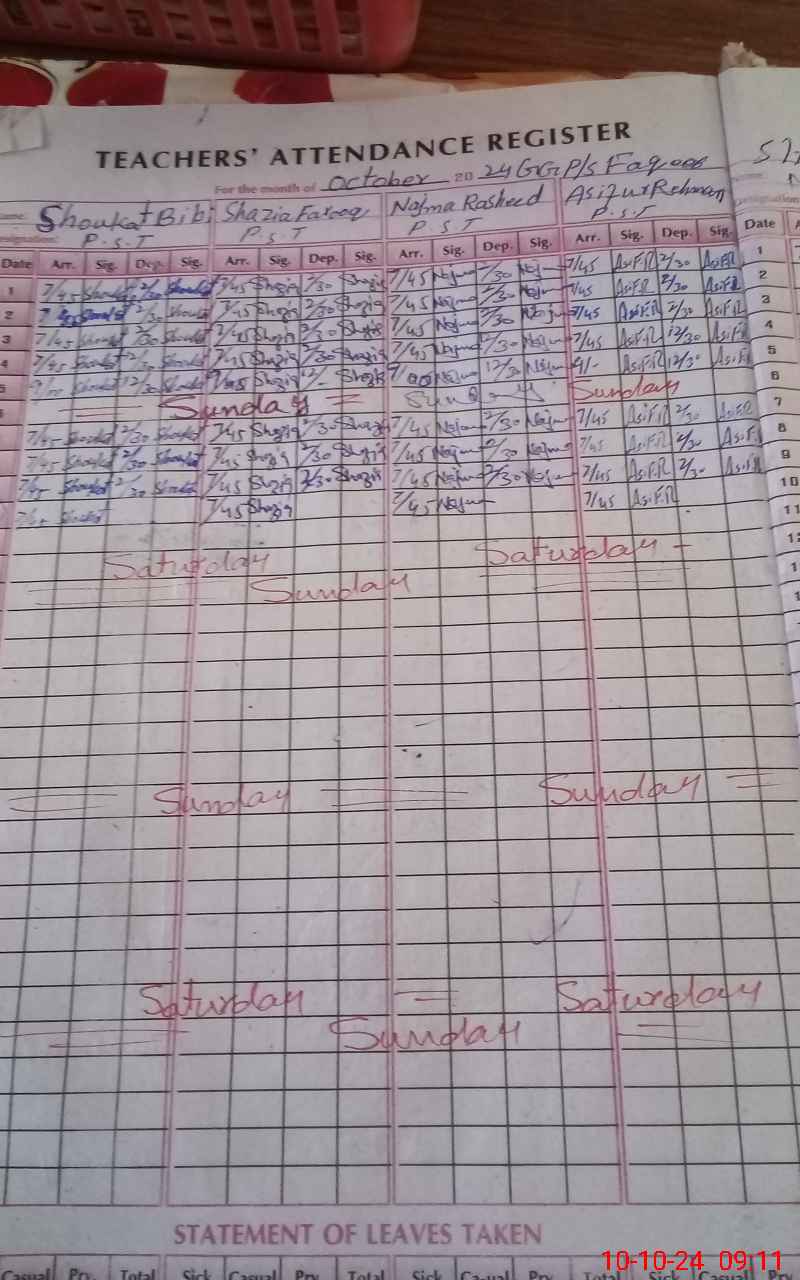 TEACHERS' ATTENDANCE REGISTER
For the month of October 20 24 G.G.P/S Faqoos
Shoukat Bibi Shazia Farooq Najma Rasheed Asif ur Rehman
P.S.T P.S.T P.S.T P.S.T
Date Arr. Sig. Dep. Sig. Arr. Sig. Dep. Sig. Arr. Sig. Dep. Sig. Arr. Sig. Dep. Sig. Date
1 7/45 Shoukat 2/30 Shoukat 7/45 Shazia 2/30 Shazia 7/45 Najma 2/30 Najma 7/45 Asif.R 2/30 Asif.R 1
2 Shoukat 2/30 Shoukat 7/45 Shazia 2/30 Shazia 7/45 Najma 2/30 Najma 7/45 Asif.R 2/30 Asif.R 2
3 7/45 Shoukat 2/30 Shoukat 7/45 Shazia 2/30 Shazia 7/45 Najma 2/30 Najma 7/45 Asif.R 2/30 Asif.R 3
4 7/45 Shoukat 12/30 Shoukat 7/45 Shazia 12/30 Shazia 7/45 Najma 12/30 Najma 7/45 Asif.R 12/30 Asif.R 4
5 Shoukat 12/30 Shoukat Shazia 12/- Shazia Najma 12/30 Najma 9/- Asif.R 12/30 Asif.R 5
Sunday Sunday Sunday 6
7/45 Shoukat 2/30 Shoukat 7/45 Shazia 2/30 Shazia 7/45 Najma 2/30 Najma 7/45 Asif.R 2/30 Asif.R 7
7/45 Shoukat 2/30 Shoukat 7/45 Shazia 2/30 Shazia 7/45 Najma 2/30 Najma 7/45 Asif.R 2/30 Asif.R 8
7/45 Shoukat 2/30 Shoukat 7/45 Shazia 2/30 Shazia 7/45 Najma 2/30 Najma 7/45 Asif.R 2/30 Asif.R 9
Shoukat 7/45 Shazia 7/45 Najma 7/45 Asif.R 10
11
Saturday Saturday
Sunday
Sunday Sunday
Saturday Saturday
Sunday
STATEMENT OF LEAVES TAKEN
Casual Prv. Total Sick Casual Prv. Total Sick Casual Prv. Total Sick Casual Prv.
10-10-24 09:11